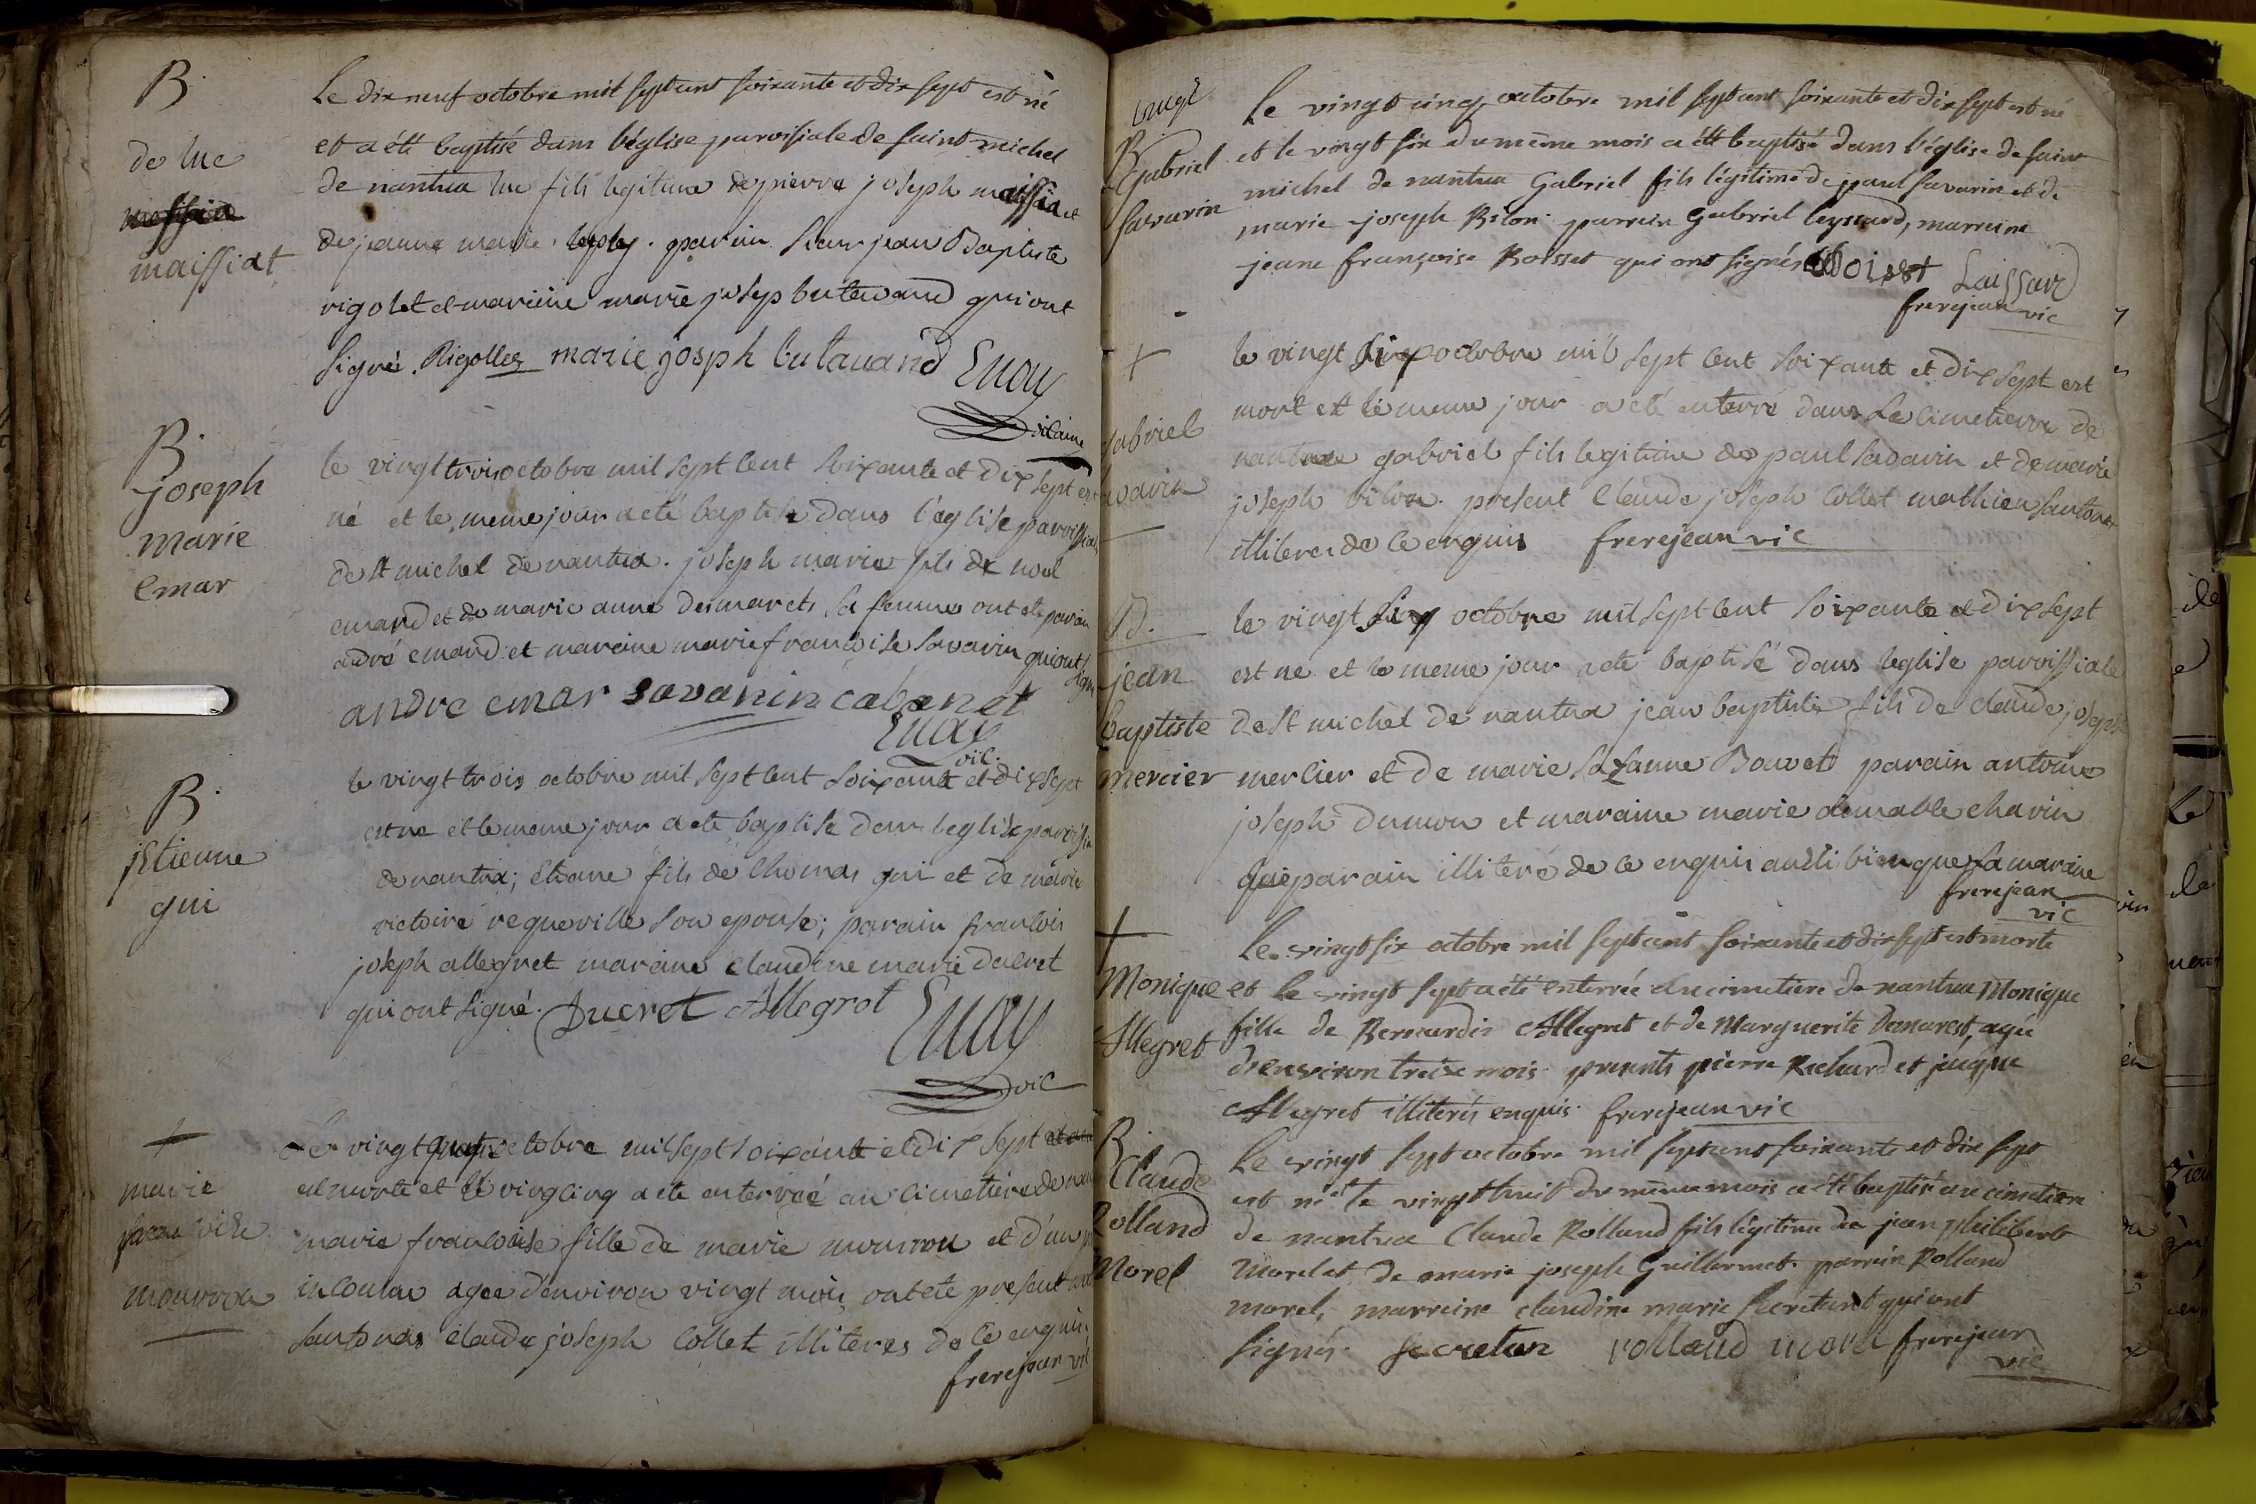 B.
de luc
maissiat
Le dix neuf octobre mil sept cent soixante et dix sept est né
et a été baptisé dans l'église paroissiale de saint michel
de nantua luc fils legitime de pierre joseph maissiat
de jeanne marie parain sieur jean Baptiste
rigolet et maraine marie josep butavand qui ont
signé. Rigollez marie josph butavand Evay
vicaire
B.
joseph
marie
emar
le vingt trois octobre mil sept cent soixante et dix sept est
né et le meme jour a eté baptisé dans l'église paroissial
de st michel de nantua. joseph marie fils de noel
emard et de marie anne desmarets sa femme ont eté parain
andré emard et maraine marie francoise savarin qui ont
signé
andre emar savarin cabanet
Evay
vic.
B.
jstienne
gui
le vingt trois octobre mil sept cent soixante et dix sept
est ne et le meme jour a eté baptisé dans leglise paroissia
de nantua; etienne fils de thomas gui et de marie
victoire requeville son epouse; parain francois
joseph allegret maraine claudine marie ducret
qui ont signé. Ducret Allegrot Evay
vic
+
marie
francoise
mourron
Le vingt quatre octobre mil sept soixante et dix sept
est morte et le vingt cinq a eté enterreé au cimetiere de nan
marie francoise fille de marie mourron et d'un
inconnu agee d'environ vingt mois ont eté present
santonas claude joseph collet illiteres de ce enquis.
frerejean vic
B
Gabriel
savarin
Le vingt cinq octobre mil sept cent soixante et dix sept est né
et le vingt six du même mois a été baptisé dans l'église de saint
michel de nantua Gabriel fils légitime de paul savarin et de
marie joseph Bilon. parrain Gabriel leyssard, marreine
jeane françoise Roisset qui ont signés Laissard
frerejean vic
+
gabriel
savarin
le vingt six octobre mil sept cent soixante et dix sept est
mort et le meme jour a eté enterré dans le cimetierre de
nantua gabriel fils legitime de paul savarin et de marie
joseph bilon. present claude joseph collet mathieu santonas
illiteres de ce enquis frerejean vic
B.
jean
baptiste
mercier
le vingt six octobre mil sept cent soixante et dix sept
est né et le meme jour a eté baptisé dans leglise paroissiale
de st michel de nantua jean baptiste fils de claude joseph
mercier et de marie sazanne Bouvet parain antoine
joseph dumon et maraine marie aimable chavin
que parain illiteré de ce enquis aussi bien que la maraine
frerejean
vic
+
Monique
Allegret
Le vingt six octobre mil sept cent soixante et dix sept est morte
et le vingt sept a été enterrée au cimetiere de nantua Monique
fille de Bernardin Allegret et de Marguerite Demarest, agée
d'environ treize mois. presents pierre Richard et jacque
Allegret illiterés enquis. frerejean vic
B.
Claude
Rolland
Morel
Le vingt sept octobre mil sept cent soixante et dix sept
est né et le vingt huit du même mois a été baptisé au cimetiere
de nantua Claude Rolland fils légitime de jean philibert
Morel et de marie joseph Guillermet. parrain Rolland
morel, marreine claudine marie secretant qui ont
signés. secretan rolland morel frerejean
vic